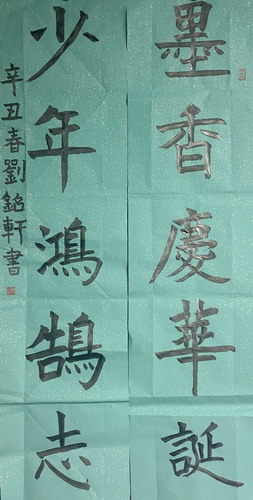 墨香慶華誕
少年鴻鵠志
辛丑春劉銘軒書